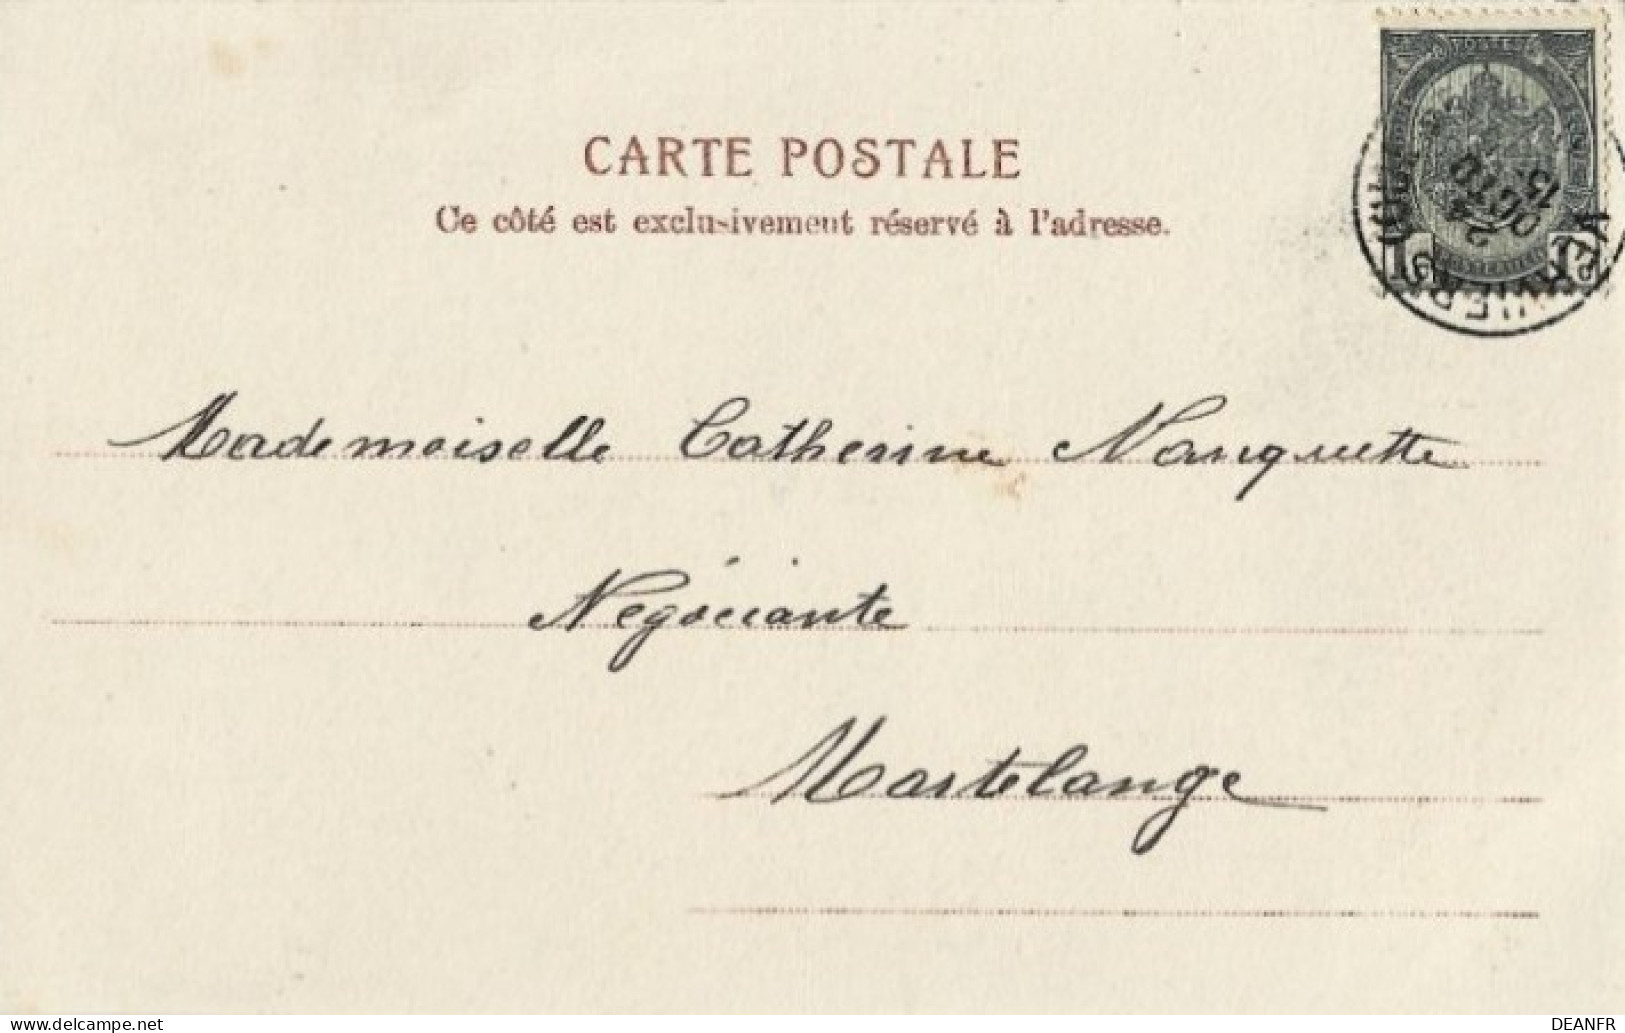 CARTE POSTALE
Ce côté est exclusivement réservé à l'adresse.
POSTES
1 1
VERVIERS
24 OCTO 13
Mademoiselle Catherine Nanquette
Négociante
Martelange
delcampe.net
DEANFR